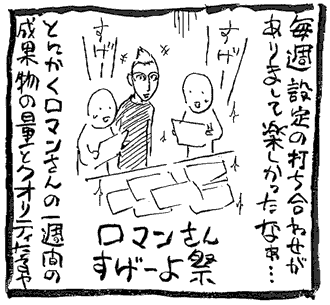 毎週設定の打ち合わせが
ありまして楽しかったなぁ…
すげー
すげー
ロマンさん
すげーよ祭
とにかくロマンさんの一週間の
成果物の量とクオリティたるや